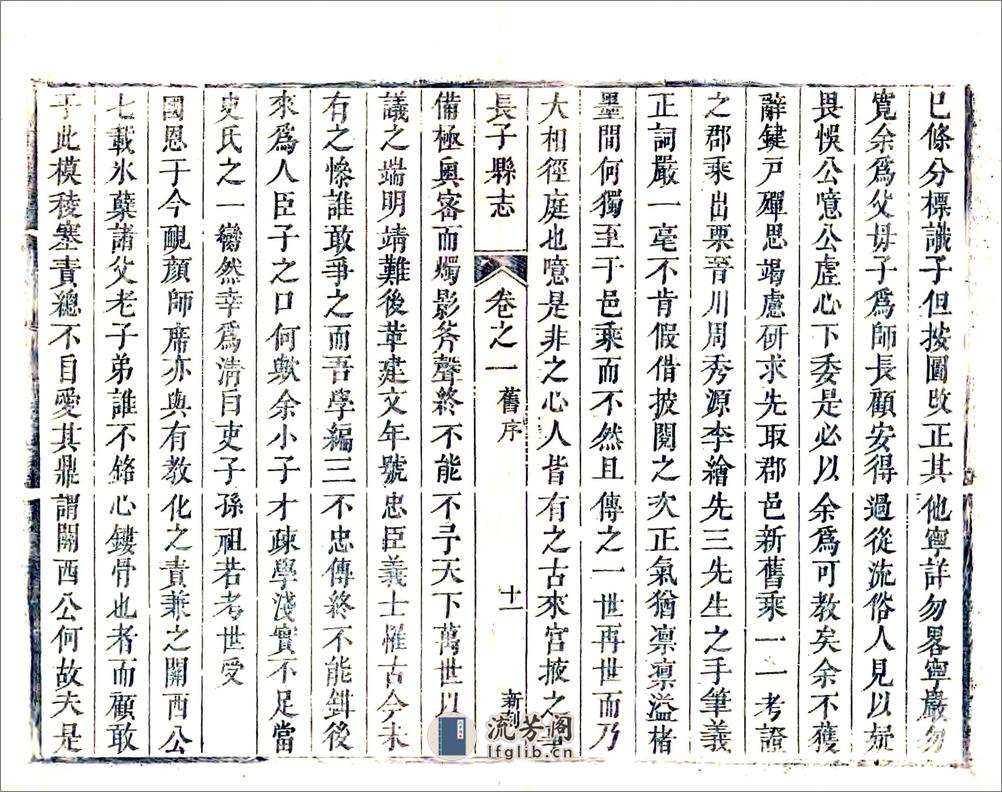 已條分標識子但按圖攷正其他寧詳勿畧寧嚴勿
寬余爲父毋子爲師長顧安得過從流俗人見以疑
畏悞公憶公虛心下委是必以余爲可教矣余不獲
辭鍵戸殫思竭慮研求先取郡邑新舊乘一一考證
之郡乘出栗晉川周秀源李繪先三先生之手筆義
正詞嚴一毫不肯假借披閱之次正氣猶凛凛溢楮
墨間何獨至于邑乘而不然且傳之一世再世而乃
大相徑庭也噫是非之心人皆有之古來宫掖之
長子縣志 卷之一 舊序 十一 新刻
備極奥宻而燭影斧聲終不能不予天下萬世以
議之端明靖難後革建文年號忠臣義士惟古今未
有之慘誰敢爭之而吾學編三不忠傳終不能鉗後
來爲人臣子之口何歟余小子才疎學淺實不足當
史氏之一臠然幸爲清白吏子孫祖若考世受
國恩于今靦顏師席亦與有教化之責兼之關西公
七載氷蘗諸父老子弟誰不銘心鏤骨也者而顧敢
于此模稜塞責總不自愛其鼎謂關西公何故夫是
流芳阁
lfglib.cn